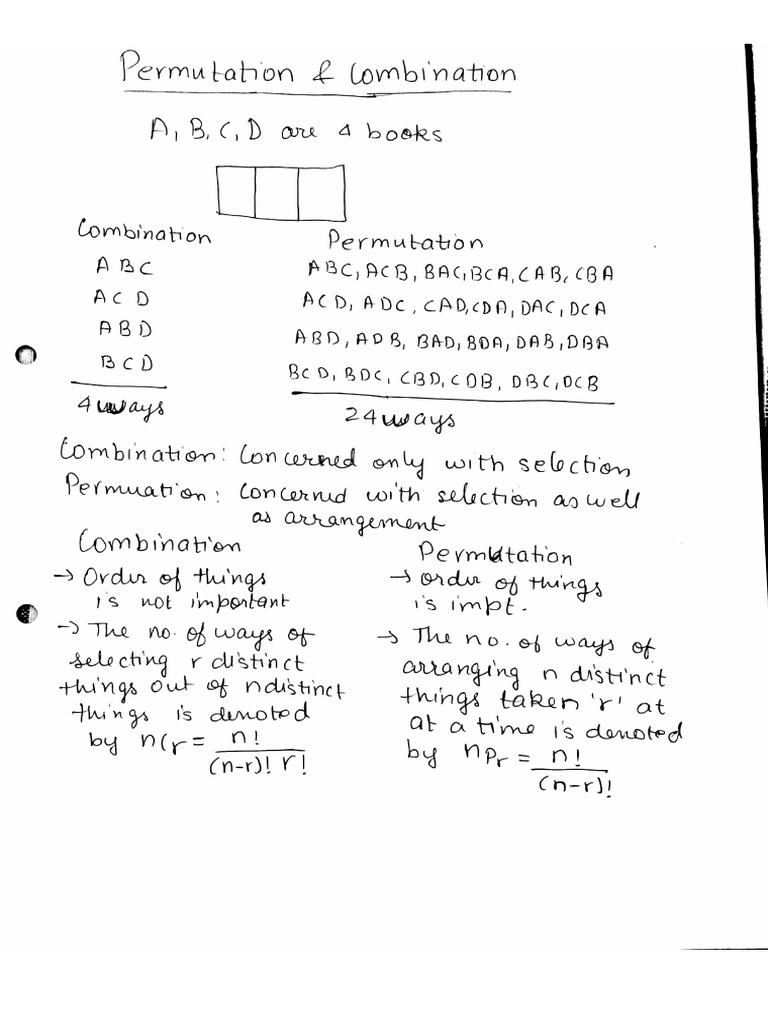 Permutation & Combination
A, B, C, D are 4 books
Combination
ABC
ACD
ABD
BCD
4 ways
Permutation
ABC, ACB, BAC, BCA, CAB, CBA
ACD, ADC, CAD, CDA, DAC, DCA
ABD, ADB, BAD, BDA, DAB, DBA
BCD, BDC, CBD, CDB, DBC, DCB
24 ways
Combination: Concerned only with selection
Permuation: Concerned with selection as well
as arrangement
Combination
→ Order of things
is not important
→ The no. of ways of
selecting r distinct
things out of n distinct
things is denoted
by nCr = n!
(n-r)! r!
Permutation
→ order of things
is impt.
→ The no. of ways of
arranging n distinct
things taken 'r' at
at a time is denoted
by nPr = n!
(n-r)!